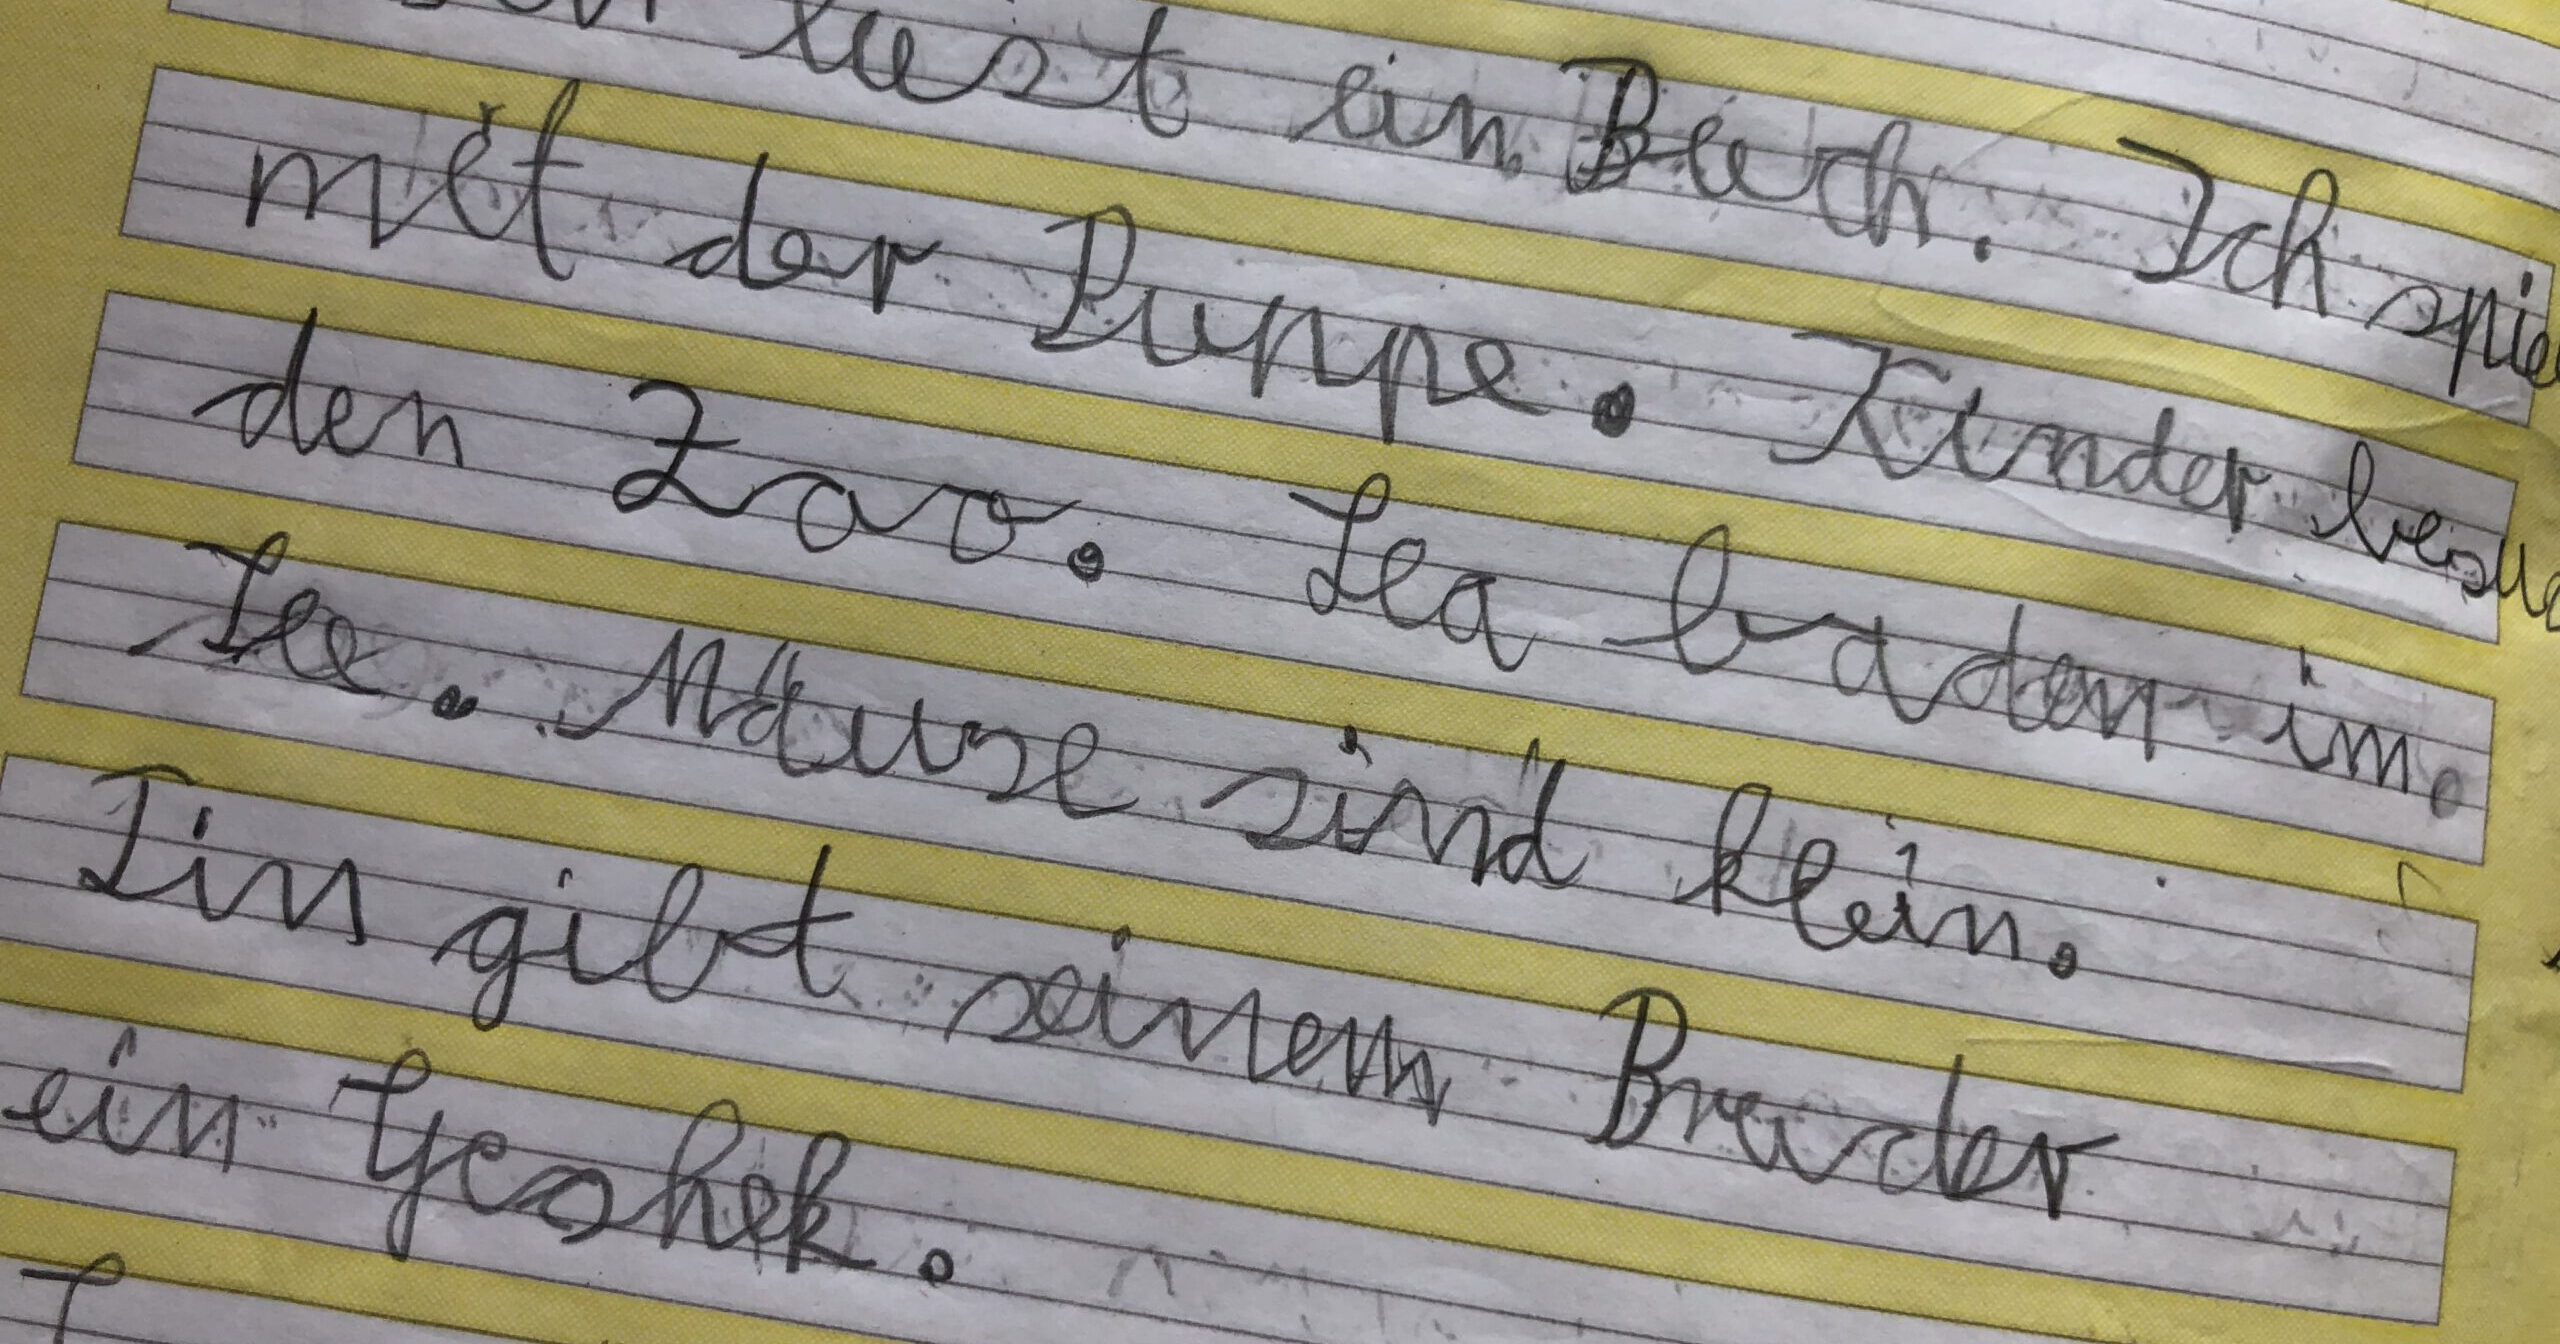 liest ein Buch. Ich spie
mit der Puppe. Kinder besuc
den Zoo. Lea baden im.
See. Mäuse sind klein.
Tim gibt seinem Bruder
ein Geshek.